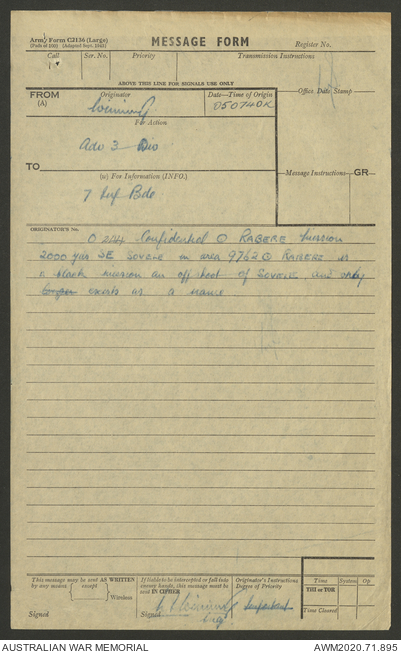 Army Form C2136 (Large)
(Pads of 100) (Adapted Sept. 1941)
MESSAGE FORM
Register No.
Call
Ser. No.
Priority
Transmission Instructions
ABOVE THIS LINE FOR SIGNALS USE ONLY
FROM
(A)
Originator
Date—Time of Origin
050740K
Office Date Stamp
For Action
Adv 3 Div
TO
(w) For Information (INFO.)
7 Inf Bde
Message Instructions
GR
ORIGINATOR'S No.
O 244 Confidential O RABERE mission
2000 yds SE SOVELE in area 9762 O RABERE is
a black mission an off shoot of SOVELE and only
exists as a name
This message may be sent AS WRITTEN
by any means except
Wireless
Signed
If liable to be intercepted or fall into
enemy hands, this message must be
sent IN CIPHER
Signed
Originator's Instructions
Degree of Priority
Important
Time
System
Op.
THI or TOR
Time Cleared
AUSTRALIAN WAR MEMORIAL
AWM2020.71.895